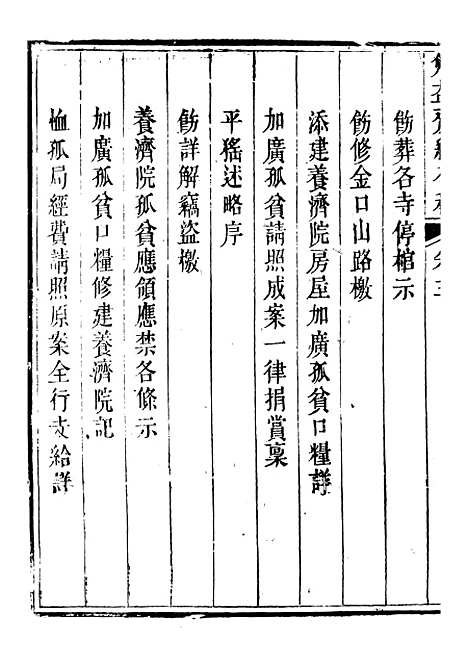 飭葬各寺停棺示
飭修金口山路檄
添建養濟院房屋加廣孤貧口糧詳
加廣孤貧請照成案一律捐賞稟
平猺述略序
飭詳解竊盜檄
養濟院孤貧應領應禁各條示
加廣孤貧口糧修建養濟院記
恤孤局經費請照原案全行支給詳